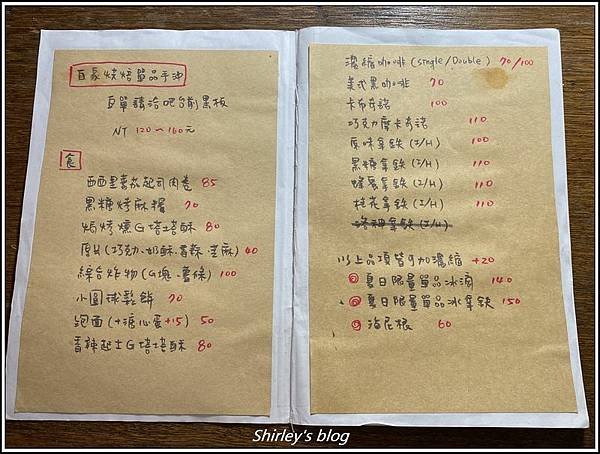 自家烘焙單品手沖
自單請洽吧台前黑板
NT 120～160元
食
西西里素放起司肉卷 85
黑糖烤麻糬 70
焗烤燻G塔塔酥 80
厚片(巧克力、奶酥、香蒜、芝麻) 40
綜合炸物(G塊、薯條) 100
小圓球鬆餅 70
泡麵(+糖心蛋+15) 50
香辣起士G塔塔酥 80
濃縮咖啡(single/Double) 70/100
美式黑咖啡 70
卡布奇諾 100
巧克力摩卡奇諾 110
原味拿鐵(I/H) 100
黑糖拿鐵(I/H) 110
蜂蜜拿鐵(I/H) 110
桂花拿鐵(I/H) 110
洛神拿鐵(I/H)
以上品項皆可加濃縮 +20
夏日限量單品冰滴 140
夏日限量單品冰拿鐵 150
沿尼根 60
Shirley's blog